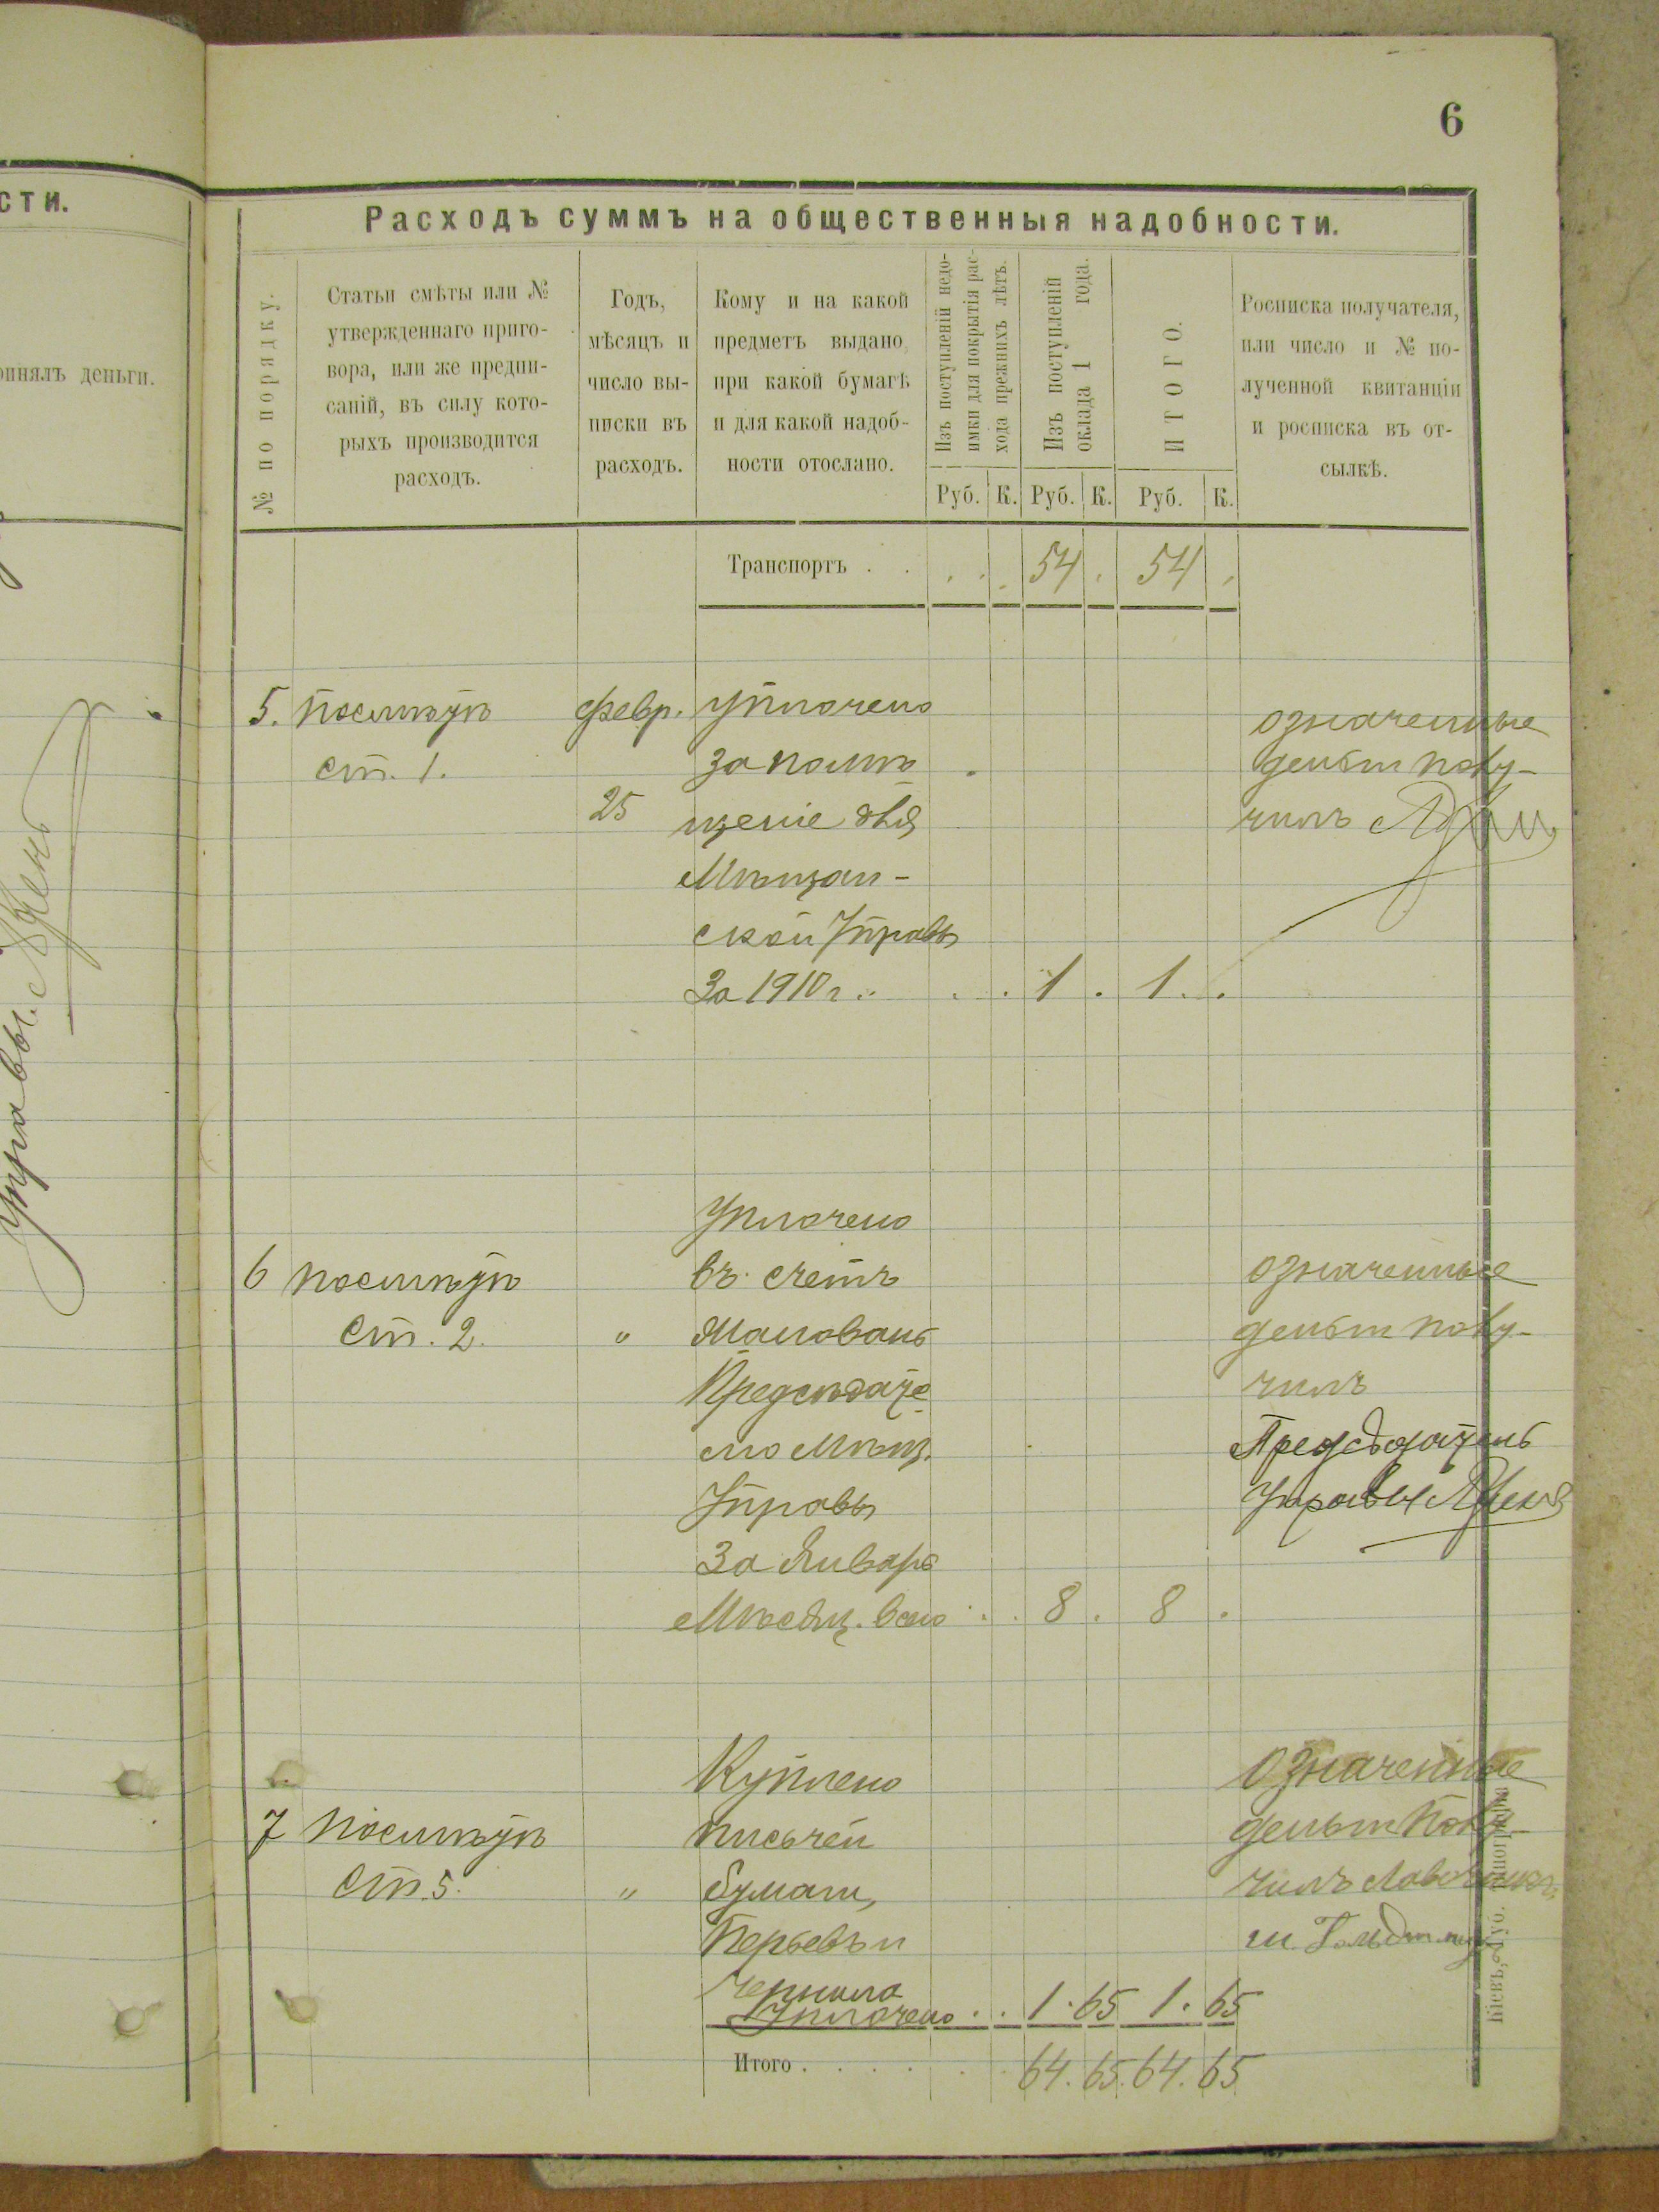 сти.
ринялъ деньги.
управы.
6
Расходъ суммъ на общественныя надобности.
№ по порядку.
Статьи смѣты или №
утвержденнаго приго-
вора, или же предпи-
саній, въ силу кото-
рыхъ производится
расходъ.
Годъ,
мѣсяцъ и
число вы-
писки въ
расходъ.
Кому и на какой
предметъ выдано,
при какой бумагѣ
и для какой надоб-
ности отослано.
Изъ поступленій недо-
имки для покрытія рас-
хода прежнихъ лѣтъ.
Изъ поступленій
оклада 1 года.
ИТОГО.
Росписка получателя,
или число и № по-
лученной квитанціи
и росписка въ от-
сылкѣ.
Руб. К. Руб. К. Руб. К.
Транспортъ . . 54 . 54 .
5. по смѣтѣ февр. Уплочено
ст. 1. за помѣ
25 щеніе для
Мѣщан-
ской Управы
За 1910 г. . . 1 . 1 . .
означенные
деньги полу-
чилъ
Уплочено
6 по смѣтѣ въ счетъ
ст. 2. " Жалованъ
Предсѣдате
лю Мѣщ.
Управы
За Январь
Мѣсяц. всего . . 8 . 8 .
означенные
деньги полу-
чилъ
Предсѣдатель
Управы
Куплено
7 по смѣтѣ писчей
ст. 5. " бумаги,
Перьевъ и
Чернила
Уплочено . . 1 . 65 1 . 65
означенные
деньги полу-
чилъ
Итого . . . . 64. 65. 64. 65
Кіевъ, Губ. Типографія